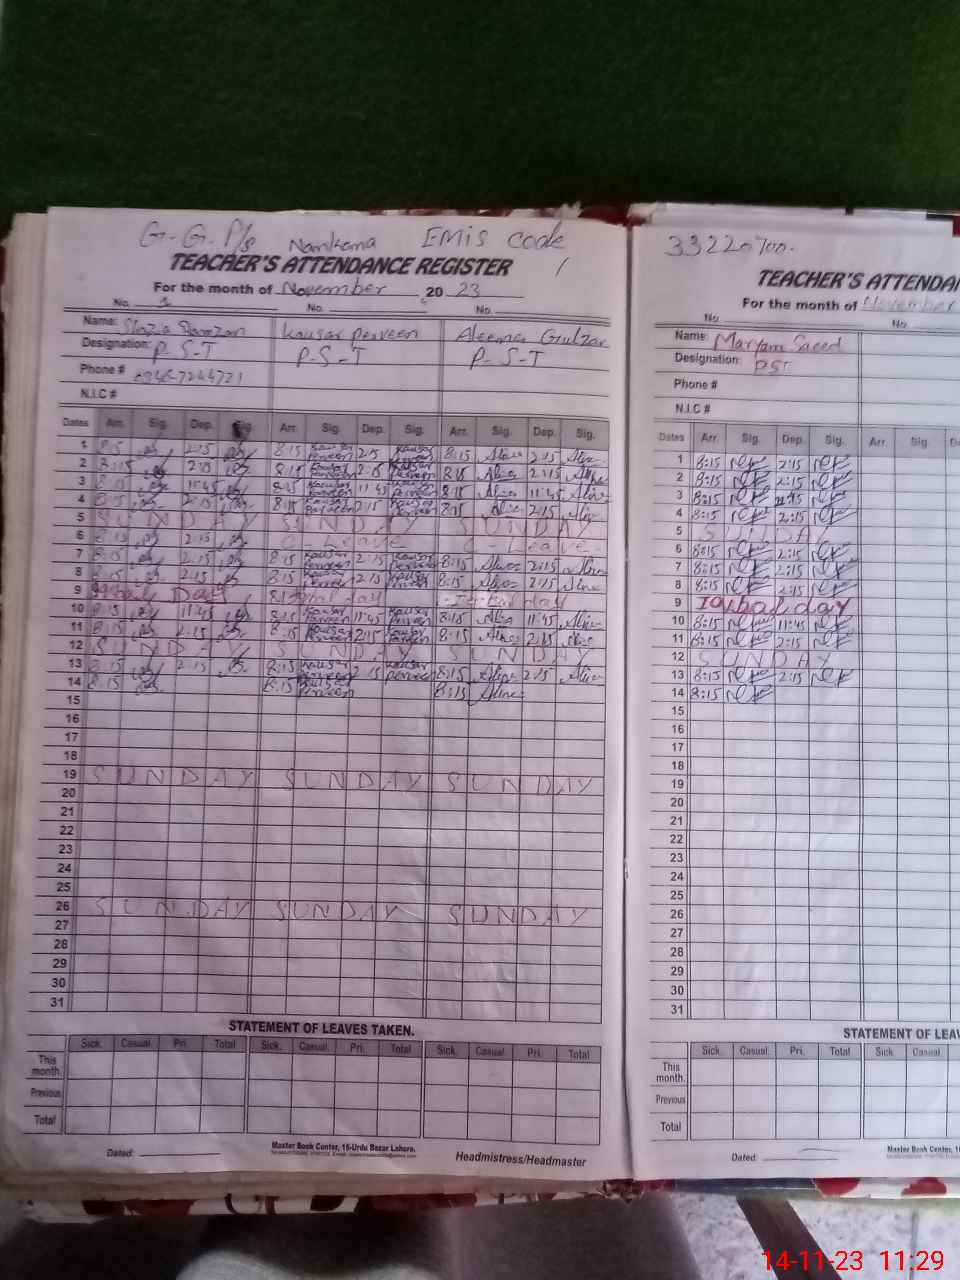 G.G. P/s Nankana EMis code
TEACHER'S ATTENDANCE REGISTER
For the month of November 2023
No. No. No.
Name: Kausar Perveen Aleema Gulzar
Designation: P-S-T P-S-T P-S-T
Phone #
N.I.C #
Dates Arr. Sig. Dep. Sig. Arr. Sig. Dep. Sig. Arr. Sig. Dep. Sig.
1 8:15 2:15 8:15 Kausar Perveen 2:15 Kausar 8:15 2:15
2 8:15 2:15 8:15 Kausar Perveen 2:15 Kausar Perveen 8:15 2:15
3 8:15 11:45 8:15 Kausar Perveen 11:45 Kausar Perveen 8:15 11:45
4 8:15 2:15 8:15 Kausar Perveen 2:15 Kausar Perveen 8:15 2:15
5 SUNDAY SUNDAY SUNDAY
6 2:15 C-Leave C-Leave
7 8:15 2:15 8:15 Kausar Perveen 2:15 Kausar Perveen 8:15 2:15
8 8:15 2:15 8:15 Kausar Perveen 2:15 Kausar Perveen 8:15 2:15
9 Iqbal Day Iqbal day Iqbal day
10 8:15 11:45 8:15 Kausar Perveen 11:45 Kausar Perveen 8:15 11:45
11 8:15 2:15 8:15 Kausar Perveen 2:15 Kausar Perveen 8:15 2:15
12 SUNDAY SUNDAY SUNDAY
13 8:15 2:15 8:15 Kausar Perveen 2:15 Kausar Perveen 8:15 2:15
14 8:15 8:15 Kausar Perveen 8:15
15
16
17
18
19 SUNDAY SUNDAY SUNDAY
20
21
22
23
24
25
26 SUNDAY SUNDAY SUNDAY
27
28
29
30
31
STATEMENT OF LEAVES TAKEN.
Sick. Casual. Pri. Total Sick. Casual. Pri. Total Sick. Casual Pri. Total
This month.
Previous
Total
Dated:
Master Book Center, 16-Urdu Bazar Lahore.
Headmistress/Headmaster
33220700.
TEACHER'S ATTENDA
For the month of November
No. No.
Name: Maryam Saeed
Designation: PST
Phone #
N.I.C #
Dates Arr. Sig. Dep. Sig. Arr. Sig.
1 8:15 2:15
2 8:15 2:15
3 8:15 11:45
4 8:15 2:15
5 SUNDAY
6 8:15 2:15
7 8:15 2:15
8 8:15 2:15
9 Iqbal day
10 8:15 11:45
11 8:15 2:15
12 SUNDAY
13 8:15 2:15
14 8:15
15
16
17
18
19
20
21
22
23
24
25
26
27
28
29
30
31
STATEMENT OF LEA
Sick. Casual. Pri. Total Sick Casual
This month.
Previous
Total
Dated:
Master Book
14-11-23 11:29